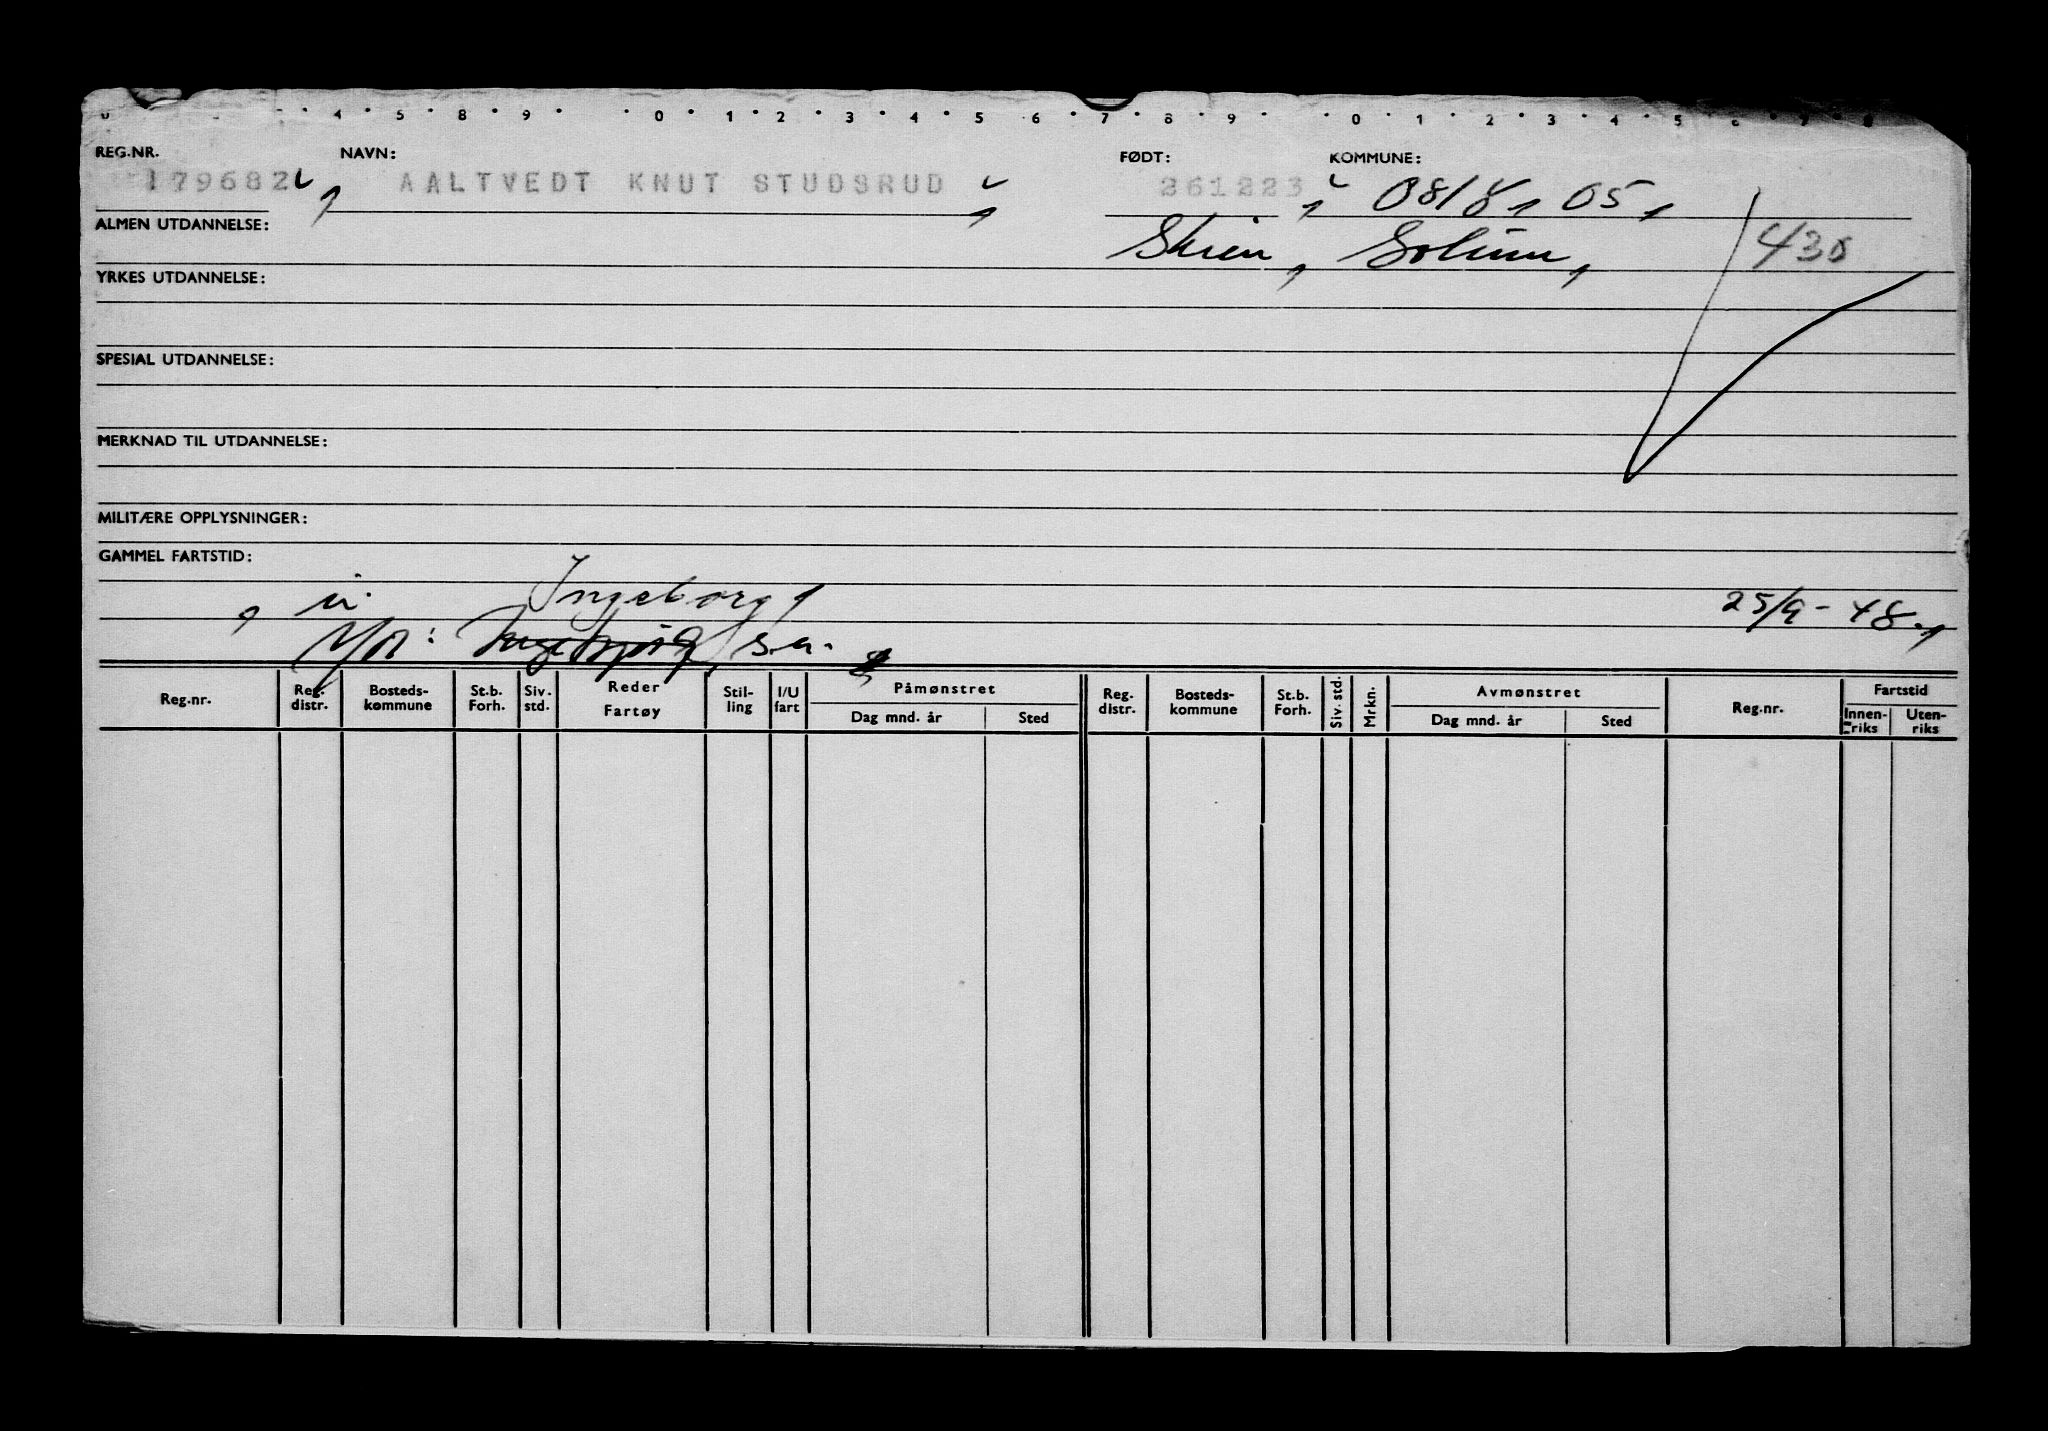 4 5 8 9 0 1 2 3 4 5 6 7 8 9 0 1 2 3 4 5 6 7 8
REG.NR. NAVN: FØDT: KOMMUNE:
179682 AALTVEDT KNUT STUDSRUD 261223 0818, 05,
ALMEN UTDANNELSE: Skien, Solum,
YRKES UTDANNELSE:
SPESIAL UTDANNELSE:
MERKNAD TIL UTDANNELSE:
MILITÆRE OPPLYSNINGER:
GAMMEL FARTSTID:
Ingeborg 25/9-48.
s.a.
Reg.nr. Reg. distr. Bosteds- kommune St.b. Forh. Siv. std. Reder Fartøy Stil- ling I/U fart Påmønstret Dag mnd. år Sted Reg. distr. Bosteds- kommune St.b. Forh. Siv. std. Mrkn. Avmønstret Dag mnd. år Sted Reg.nr. Fartstid Innen- riks Uten- riks